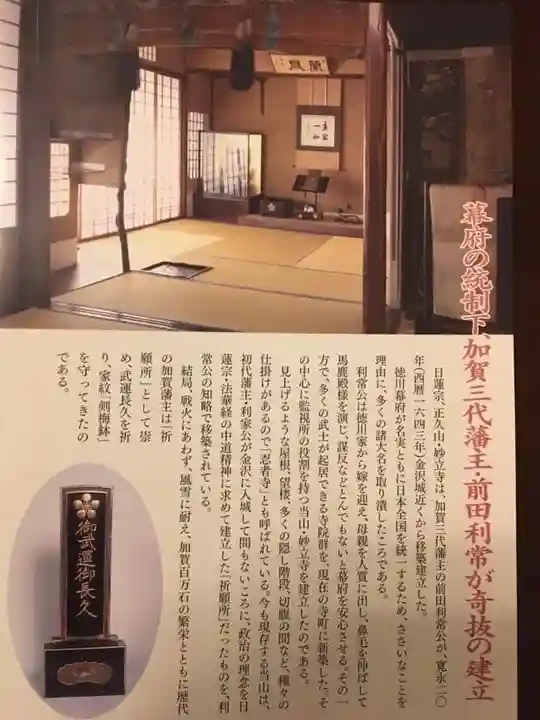 幕府の統制下、加賀三代藩主・前田利常が奇抜の建立
日蓮宗、正久山・妙立寺は、加賀三代藩主の前田利常公が、寛永二〇
年(西暦一六四三年)金沢城近くから移築建立した。
徳川幕府が名実ともに日本全国を統一するため、ささいなことを
理由に、多くの諸大名を取り潰したころである。
利常公は徳川家から嫁を迎え、母親を人質に出し、鼻毛を伸ばして
馬鹿殿様を演じ、謀反などとんでもないと幕府を安心させる。その一
方で、多くの武士が起居できる寺院群を、現在の寺町に新築した。そ
の中心に監視所の役割を持つ当山・妙立寺を建立したのである。
見上げるような屋根、望楼、多くの隠し階段、切腹の間など、種々の
仕掛けがあるので「忍者寺」とも呼ばれている。今も現存する当山は、
初代藩主・利家公が金沢に入城して間もないころに、政治の理念を日
蓮宗・法華経の中道精神に求めて建立した「祈願所」だったものを、利
常公の知略で移築されている。
結局、戦火にあわず、風雪に耐え、加賀百万石の繁栄とともに歴代
の加賀藩主は「祈
願所」として崇
め、武運長久を祈
り、家紋「剣梅鉢」
を守ってきたの
である。
御武運御長久